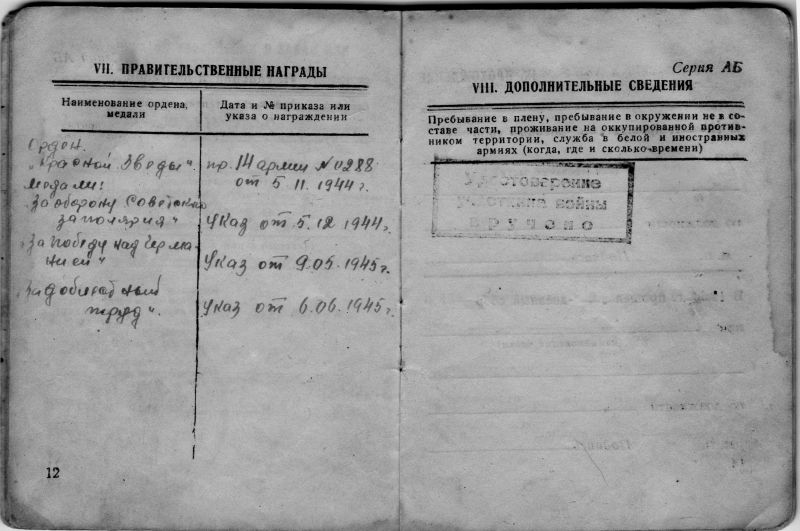 VII. ПРАВИТЕЛЬСТВЕННЫЕ НАГРАДЫ
Наименование ордена, медали
Дата и № приказа или указа о награждении
Орден.
„Красной Зведы".
пр. 14 армии № 0288
от 5 11. 1944 г.
Медали:
„За оборону Советского
заполярия"
Указ от 5.12 1944 г.
„За победу над Герма-
нией"
Указ от 9.05. 1945 г.
„За доблестный
труд".
Указ от 6.06. 1945 г.
12
Серия АБ
VIII. ДОПОЛНИТЕЛЬНЫЕ СВЕДЕНИЯ
Пребывание в плену, пребывание в окружении не в со-
ставе части, проживание на оккупированной против-
ником территории, служба в белой и иностранных
армиях (когда, где и сколько времени)
Удостоверение
участника войны
вручено